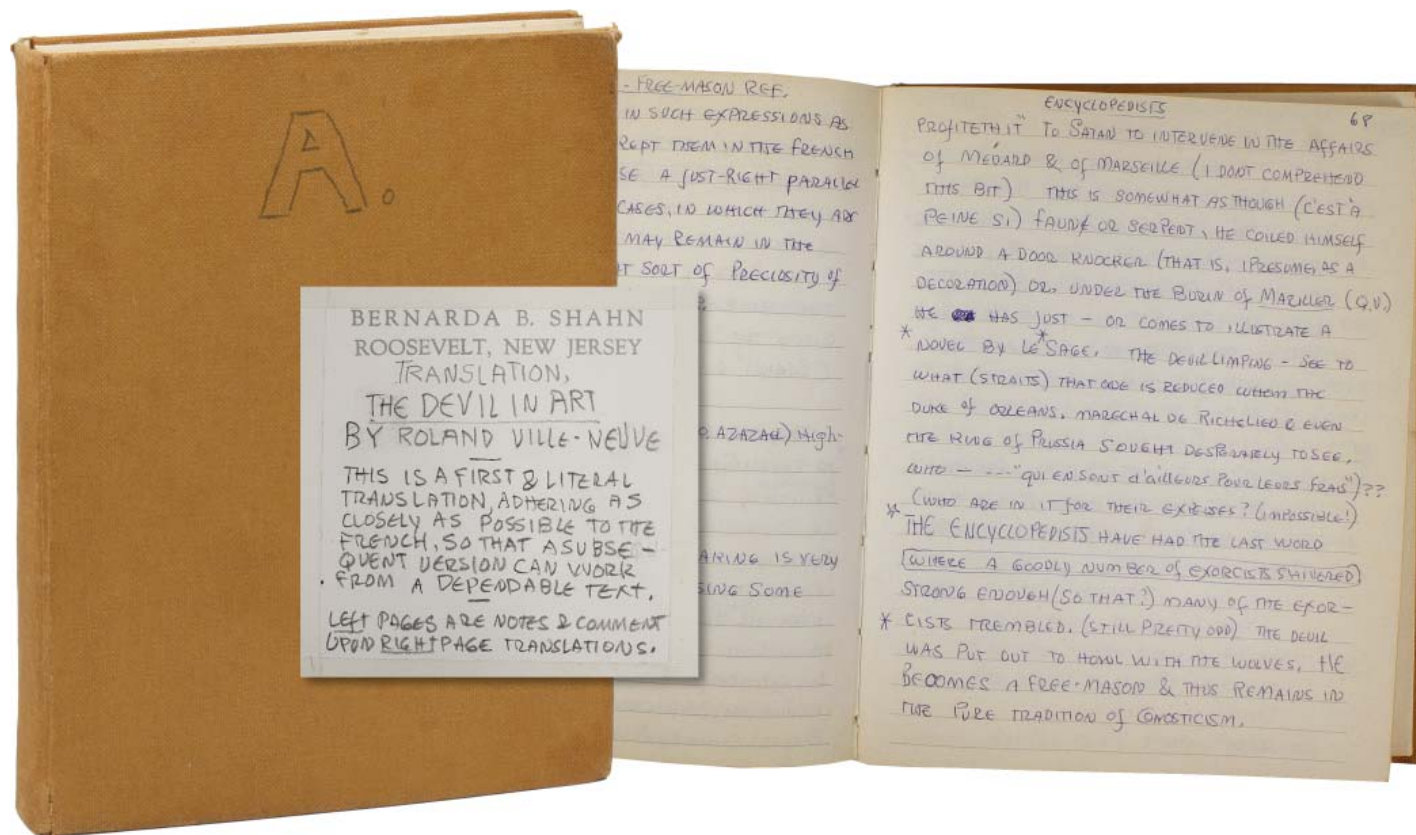 A.
BERNARDA B. SHAHN
ROOSEVELT, NEW JERSEY
TRANSLATION,
THE DEVIL IN ART
BY ROLAND VILLE-NEUVE
THIS IS A FIRST & LITERAL
TRANSLATION, ADHERING AS
CLOSELY AS POSSIBLE TO THE
FRENCH, SO THAT A SUBSE-
QUENT VERSION CAN WORK
FROM A DEPENDABLE TEXT.
LEFT PAGES ARE NOTES & COMMENT
UPON RIGHT PAGE TRANSLATIONS.
- FREE-MASON REF.
IN SUCH EXPRESSIONS AS
THEM IN THE FRENCH
A JUST-RIGHT PARALLEL
CASES, IN WHICH THEY ARE
MAY REMAIN IN THE
SORT OF PRECIOSITY OF
AZAZAEL) HIGH-
IS VERY
SOME
ENCYCLOPEDISTS
68
PROFITETH IT" TO SATAN TO INTERVENE IN THE AFFAIRS
OF MÉDARD & OF MARSEILLE (I DONT COMPREHEND
THIS BIT) THIS IS SOMEWHAT AS THOUGH (C'EST À
PEINE SI) FAUN OR SERPENT, HE COILED HIMSELF
AROUND A DOOR KNOCKER (THAT IS, I PRESUME, AS A
DECORATION) OR, UNDER THE BURIN OF MARILLER (Q.V.)
HE HAS JUST - OR COMES TO ILLUSTRATE A
* NOVEL BY LE *SAGE. THE DEVIL LIMPING - SEE TO
WHAT (STRAITS) THAT ONE IS REDUCED WHOM THE
DUKE OF ORLEANS, MARECHAL DE RICHELIEU & EVEN
THE KING OF PRUSSIA SOUGHT DESPERATELY TO SEE,
WHO - --- "QUI EN SONT d'AILLEURS POUR LEURS FRAIS")??
(WHO ARE IN IT FOR THEIR EXPENSES? (IMPOSSIBLE!)
* THE ENCYCLOPEDISTS HAVE HAD THE LAST WORD
(WHERE A GOODLY NUMBER OF EXORCISTS SHIVERED)
STRONG ENOUGH (SO THAT?) MANY OF THE EXOR-
* CISTS TREMBLED. (STILL PRETTY ODD) THE DEVIL
WAS PUT OUT TO HOWL WITH THE WOLVES. HE
BECOMES A FREE-MASON & THUS REMAINS IN
THE PURE TRADITION OF GNOSTICISM.